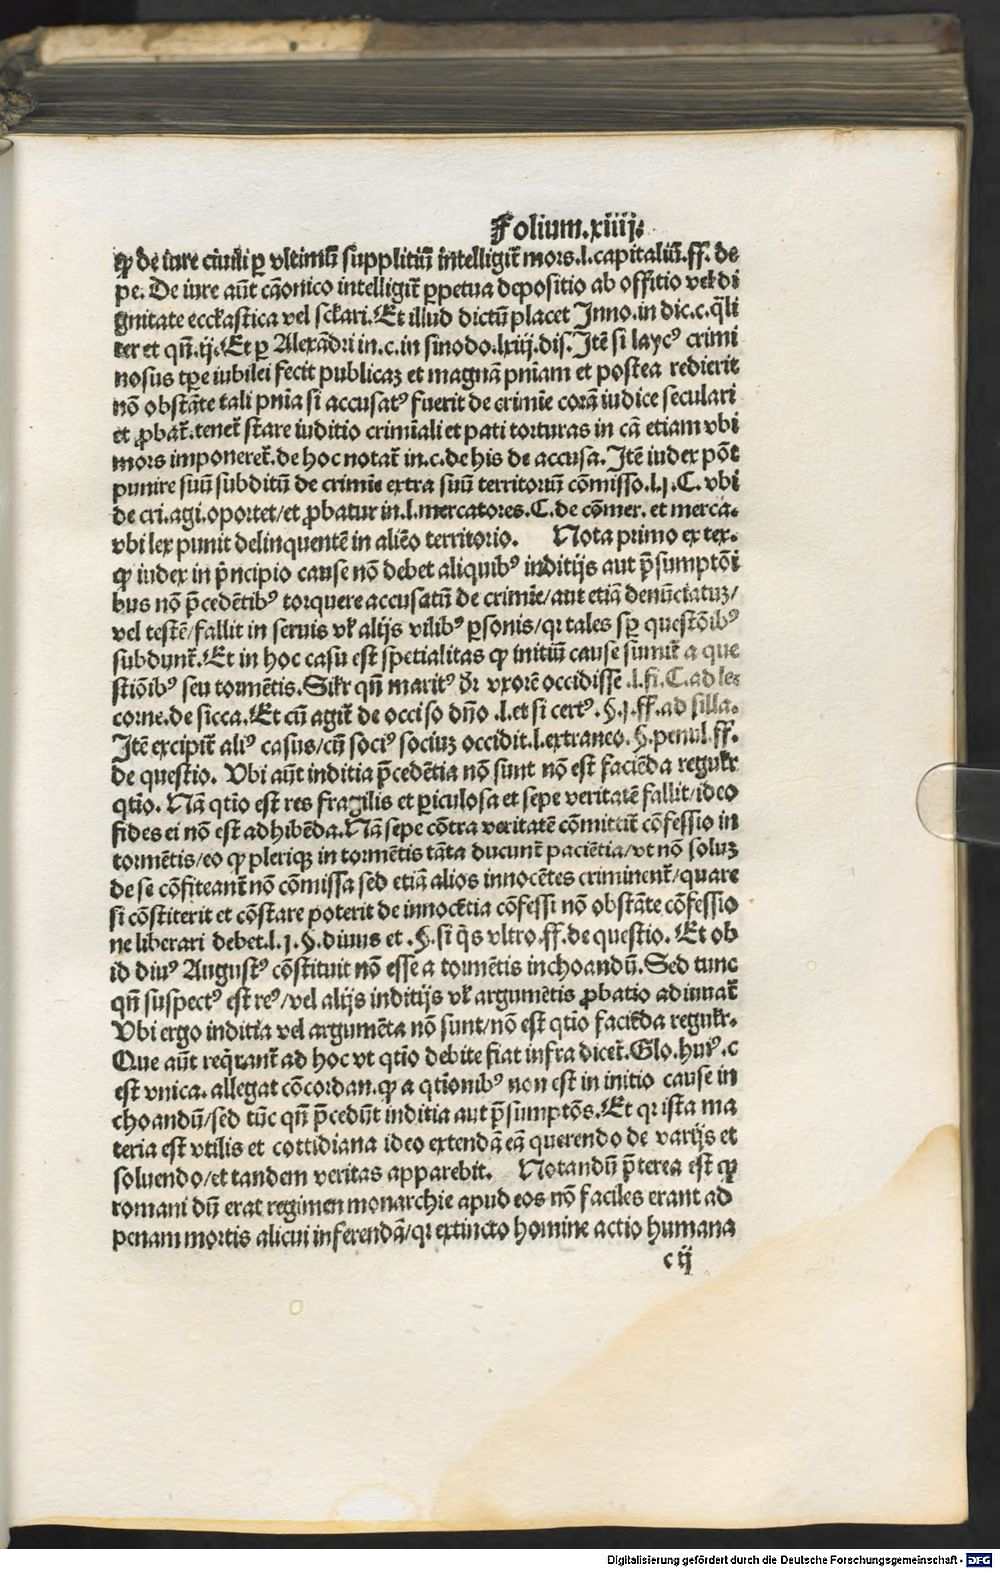 Folium.xiiij.
ꝙ de iure ciuili ꝑ vltimũ supplitiũ intelligit̃ mors.l.capitaliũ.ff. de
pe. De iure aũt cãonico intelligit̃ ꝑpetua depositio ab offitio vel di
gnitate eccłastica vel scłari. Et illud dictũ placet Inno. in dic.c. q̃li
ter et qñ.ij. Et ꝑ Alexãdri in.c. in sinodo.lxiij.dis. Itẽ si laycꝰ crimi
nosus tꝑe iubilei fecit publicaꝫ et magnã pñiam et postea redierit
nõ obstãte tali pñia si accusatꝰ fuerit de crimĩe corã iudice seculari
et ꝓbat̃.tenet̃ stare iuditio crimĩali et pati torturas in cã etiam vbi
mors imponeret̃.de hoc notat̃ in.c.de his de accusa. Itẽ iudex põt
punire suũ subditũ de crimĩe extra suũ territoriũ cõmisso.l.j.C. vbi
de cri.agi.oportet/et ꝓbatur in.l.mercatores.C. de cõmer. et merca.
vbi lex punit delinquentẽ in aliẽo territorio. Nota primo ex tex.
ꝙ iudex in p̃ncipio cause nõ debet aliquibꝰ inditijs aut p̃sumptõi
bus nõ p̃cedẽtibꝰ torquere accusatũ de crimĩe/aut etiã denũciatuꝫ/
vel testẽ/fallit in seruis vł alijs vilibꝰ ꝑsonis/qꝛ tales sꝑ questõibꝰ
subdunt̃. Et in hoc casu est spetialitas ꝙ initiũ cause sumit̃ a que
stiõibꝰ seu tormẽtis. Silr qñ maritꝰ dr̃ vxorẽ occidisse .l.fi.C. ad le.
corne.de sicca. Et cũ agit̃ de occiso dño .l.et si certꝰ.§.j.ff.ad silla.
Itẽ excipit̃ aliꝰ casus/cũ sociꝰ sociuꝫ occidit.l.extraneo.§.penul.ff.
de questio. Vbi aũt inditia p̃cedẽtia nõ sunt nõ est faciẽda regulr
qtio. Nã qtio est res fragilis et ꝑiculosa et sepe veritatẽ fallit/ideo
fides ei nõ est adhibẽda. Nã sepe cõtra veritatẽ cõmittit̃ cõfessio in
tormẽtis/eo ꝙ pleriqꝫ in tormẽtis tãta ducunt̃ paciẽtia/vt nõ soluꝫ
de se cõfiteant̃ nõ cõmissa sed etiã alios innocẽtes criminent̃/quare
si cõstiterit et cõstare poterit de innocẽtia cõfessi nõ obstãte cõfessio
ne liberari debet.l.j.§.diuus et .§.si q̃s vltro.ff.de questio. Et ob
id diuꝰ Augustꝰ cõstituit nõ esse a tormẽtis inchoandũ. Sed tunc
qñ suspectꝰ est reꝰ/vel alijs inditijs vł argumẽtis ꝓbatio adiuuat̃
Vbi ergo inditia vel argumẽta nõ sunt/nõ est qtio faciẽda regulr.
Que aũt req̃rant̃ ad hoc vt qtio debite fiat infra dicet̃. Glo. huiꝰ.c
est vnica. allegat cõcordan. ꝙ a qtionibꝰ non est in initio cause in
choandũ/sed tũc qñ p̃cedũt inditia aut p̃sumptõs. Et qꝛ ista ma
teria est vtilis et cottidiana ideo extendã eã querendo de varijs et
soluendo/et tandem veritas apparebit. Notandũ p̃terea est ꝙ
romani dũ erat regimen monarchie apud eos nõ faciles erant ad
penam mortis alicui inferendã/qꝛ extincto homine actio humana
c ij
Digitalisierung gefördert durch die Deutsche Forschungsgemeinschaft - DFG